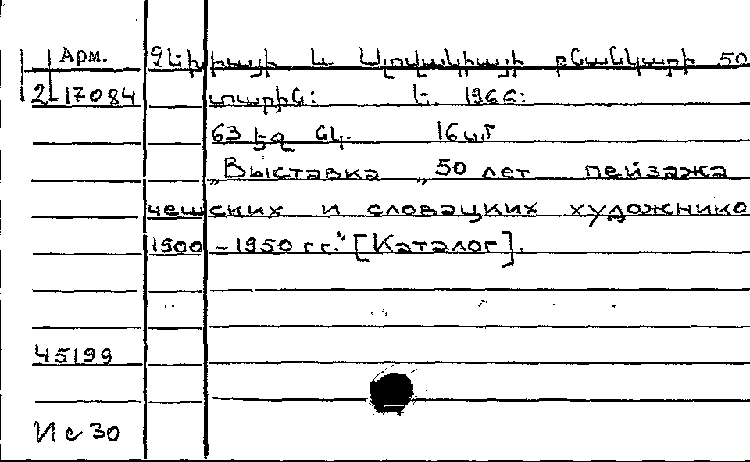 Арм. Չեխիայի և Սլովակիայի բնանկարի 50
2-17084 տարին: Ե. 1966:
63 էջ նկ. 16 սմ
„Выставка „50 лет пейзажа
чешских и словацких художнико
1900-1950 гг." [Каталог].
45199
И с 30